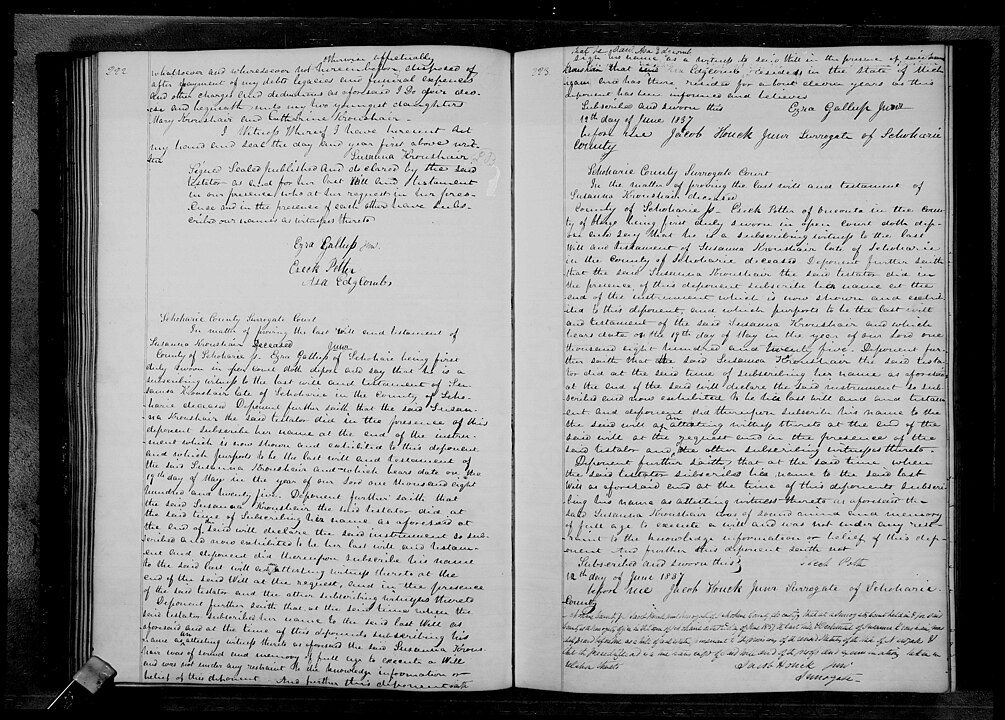 222
otherwise effectually
whatsoever and wheresoever not hereinbefore disposed of
after payment of my debts legacies and funeral expences
and other charges and deductions as aforesaid I Do give dev-
ise and bequeath unto my two youngest daughters
Mary Kronshair and Catherine Kronshair
I Witness Whereof I have hereunto set
my hand and seal the day and year first above writ-
ten
Susanna Kronshair
Signed Sealed published and declared by the said
testator as and for her last Will and testament
in our presence who at her request in her pres-
ence and in the presence of each other have subs-
cribed our names as witnesses thereto
Ezra Gallup Junr.
Eseck Potter
Asa Edgcomb
Schoharie County Surrogate Court
In matter of proving the last will and testament of
Susanna Kronshair Deceased
Junr
County of Schoharie ss. Ezra Gallup of Schoharie being first
duly sworn in open court doth depose and say that he is a
subscribing witness to the last will and testament of Su-
sanna Kronshair late of Schoharie in the County of Scho-
harie deceased Deponent further saith that the said Susan-
na Kronshair the said testator did in the presence of this
deponent subscribe her name at the end of the instru-
ment which is now shown and exhibited to this deponent
and which purports to be the last will and testament of
the said Susanna Kronshair and which bears date on the
19th day of May in the year of our Lord one thousand eight
hundred and twenty five. Deponent further saith that
the said Susanna Kronshair the said testator did at
the said time of subscribing her name as aforesaid at
the end of the said will declare the said instrument so sub-
scribed and now exhibited to be her last will and testam-
ent and deponent did thereupon subscribe his name
to the said last will as attesting witness thereto at the
end of the said Will at the request, and in the presence
of the said testator and the other subscribing witnesses thereto
Deponent further saith that at the said time when the
said testator subscribed her name to the said last Will as
aforesaid and at the time of this deponents subscribing his
name as an attesting witness thereto as aforesaid the said Susanna Krons-
hair was of sound mind and memory of full age to execute a Will
and was not under any restraint to the knowledge information or
belief of this deponent And further this deponent saith
223
that he saw Asa Edgcomb
sign his name as a witness to said Will in the presence of said
Kronshair that said Asa Edgcomb resides in the State of Mich-
igan and has there resided for about eleven years as this
deponent has been informed and believes
Subscribed and sworn this
Ezra Gallup Junr
12th day of June 1837
before me Jacob Houck Junr Surrogate of Schoharie
County
Schoharie County Surrogate Court
In the matter of proving the last will and testament of
Susanna Kronshair deceased
County of Schoharie ss. Eseck Potter of Oneonta in the Coun-
ty of Otsego being first duly sworn in open Court doth dep-
ose and say that he is a subscribing witness to the last
Will and testament of Susanna Kronshair late of Schoharie
in the County of Schoharie deceased Deponent further saith
that the said Susanna Kronshair the said testator did in
the presence of this deponent subscribe her name at the
end of this instrument which is now shown and exhib-
ited to this deponent, and which purports to be the last will
and testament of the said Susanna Kronshair and which
bears date on the 19th day of May in the year of our Lord one
thousand eight hundred and twenty five. Deponent fur-
ther saith that the said Susanna Kronshair the said testa-
tor did at the said time of subscribing her name as aforesaid
at the end of the said will declare the said instrument so sub-
scribed and now exhibited to be her last will and and testam-
ent and deponent did thereupon subscribe his name to the
the said will as an attesting witness thereto at the end of the
said will at the request and in the presence of the
said testator and the other subscribing witnesses thereto.
Deponent further saith, that at the said time when
the said testator subscribed her name to the said last
Will as aforesaid and at the time of this deponents subscri-
bing his name as attesting witness thereto as aforesaid the
said Susanna Kronshair was of sound mind and memory
of full age to execute a will and was not under any rest-
raint to the knowledge information or belief of this dep-
onent And further this deponent saith not
Subscribed and sworn this
Eseck Potter
12th day of June 1837
before me Jacob Houck Junr Surrogate of Schoharie
County
Jacob Houck Junr
Surrogate